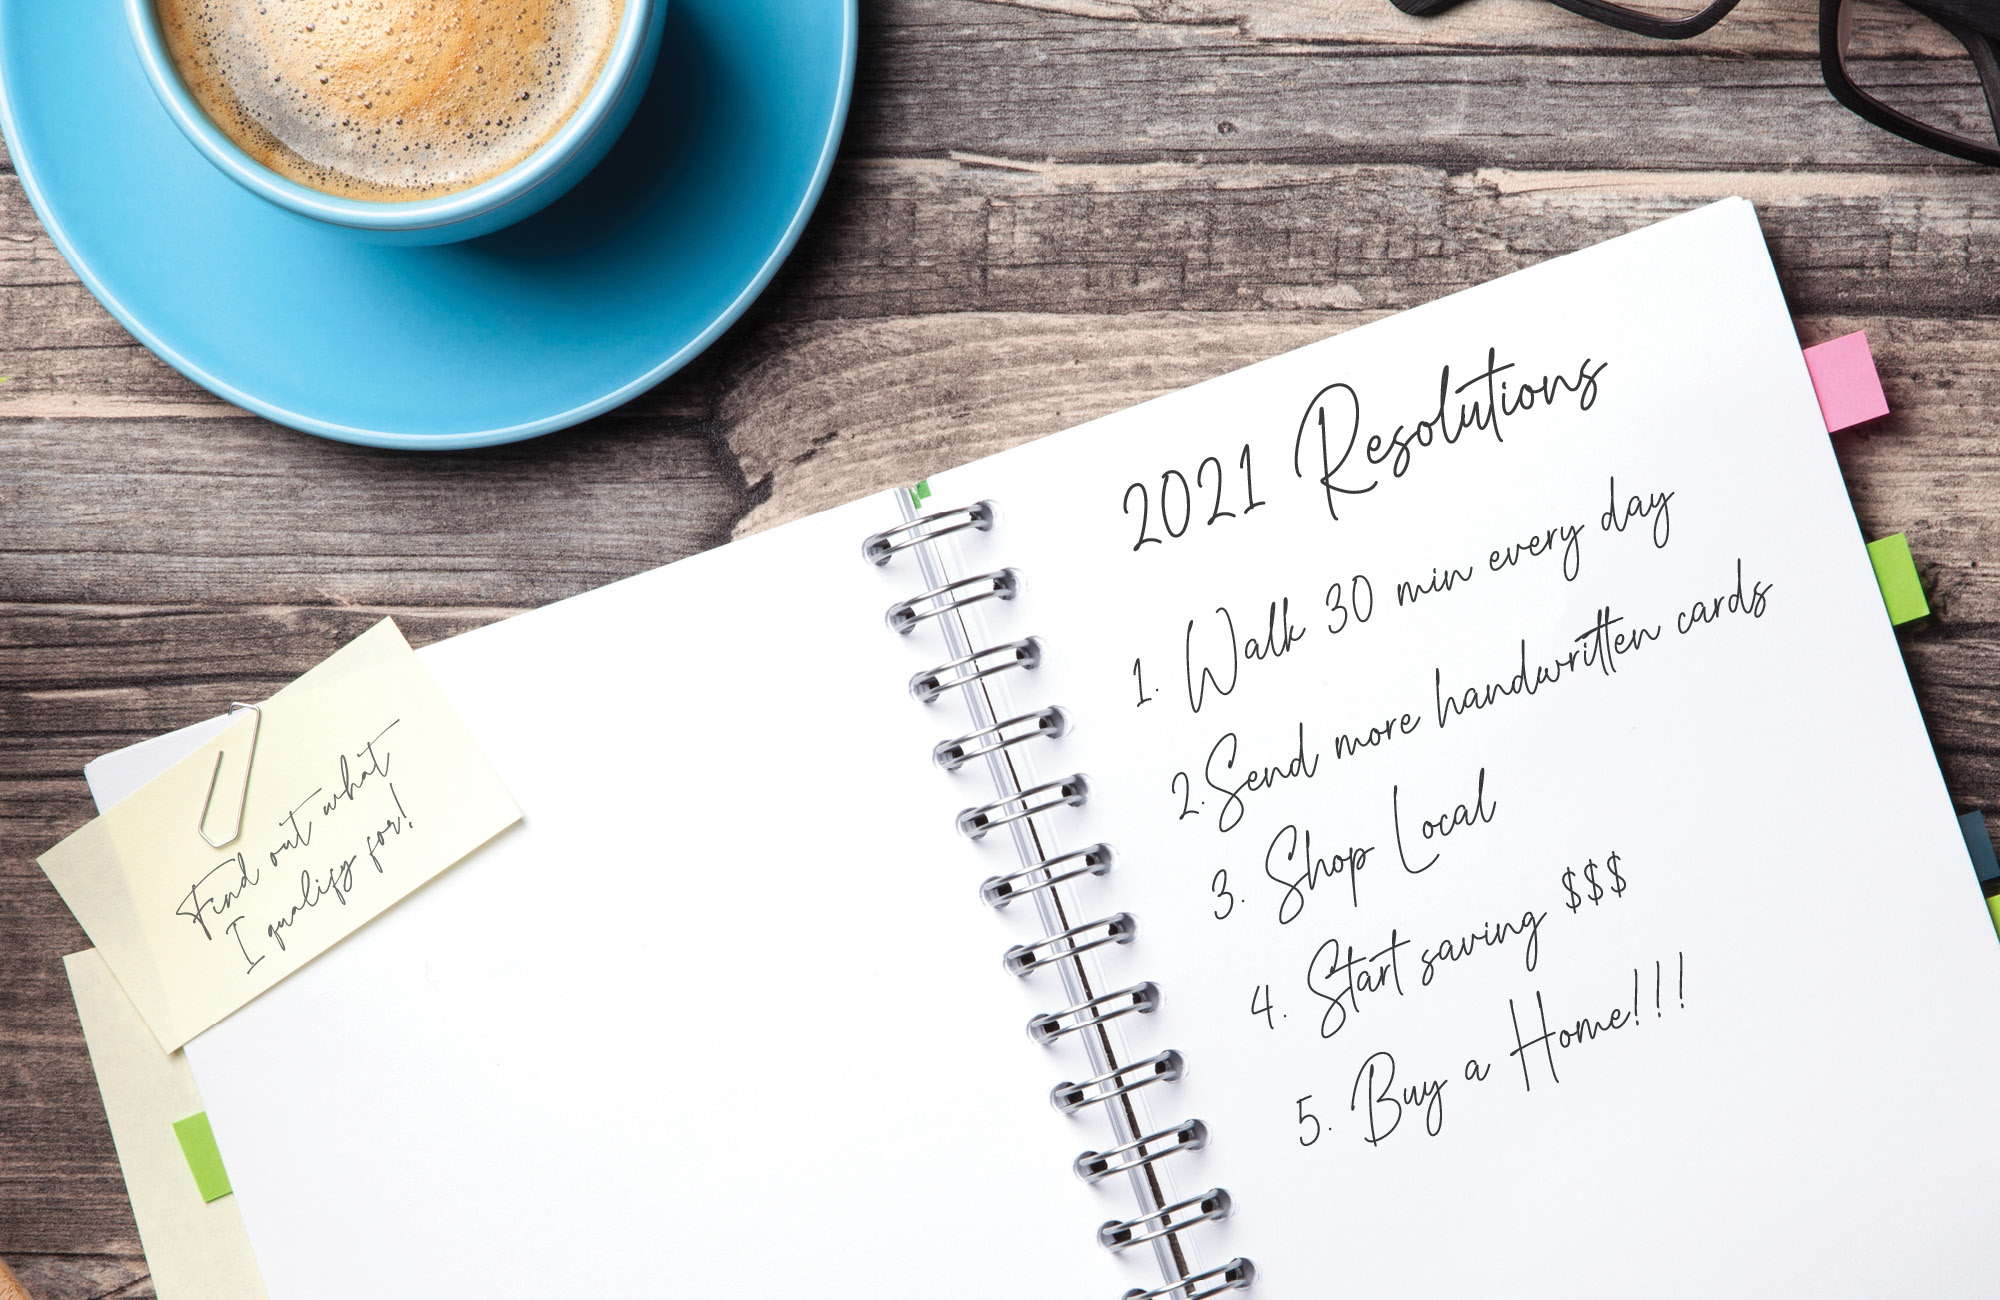 Find out what
I qualify for!
2021 Resolutions
1. Walk 30 min every day
2. Send more handwritten cards
3. Shop Local
4. Start saving $$$
5. Buy a Home!!!